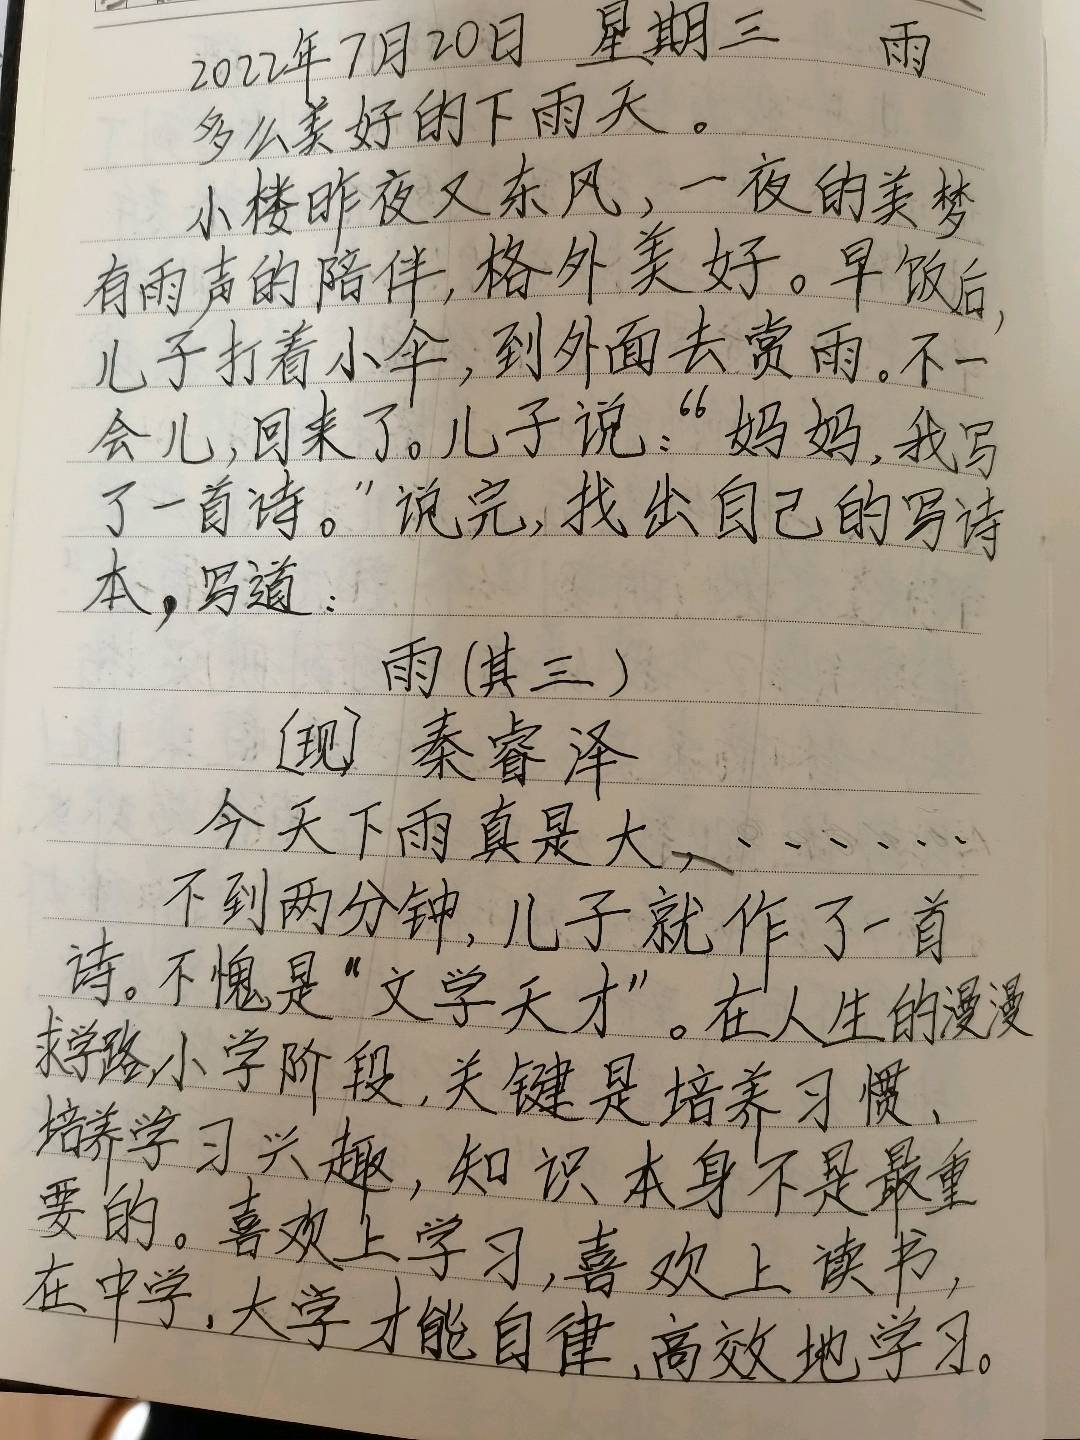 2022年7月20日 星期三 雨
多么美好的下雨天。
小楼昨夜又东风,一夜的美梦
有雨声的陪伴,格外美好。早饭后,
儿子打着小伞,到外面去赏雨。不一
会儿,回来了。儿子说:“妈妈,我写
了一首诗。”说完,找出自己的写诗
本,写道:
雨(其三)
〔现〕秦睿泽
今天下雨真是大,······
不到两分钟,儿子就作了一首
诗。不愧是“文学天才”。在人生的漫漫
求学路,小学阶段,关键是培养习惯、
培养学习兴趣,知识本身不是最重
要的。喜欢上学习,喜欢上读书,
在中学,大学才能自律、高效地学习。